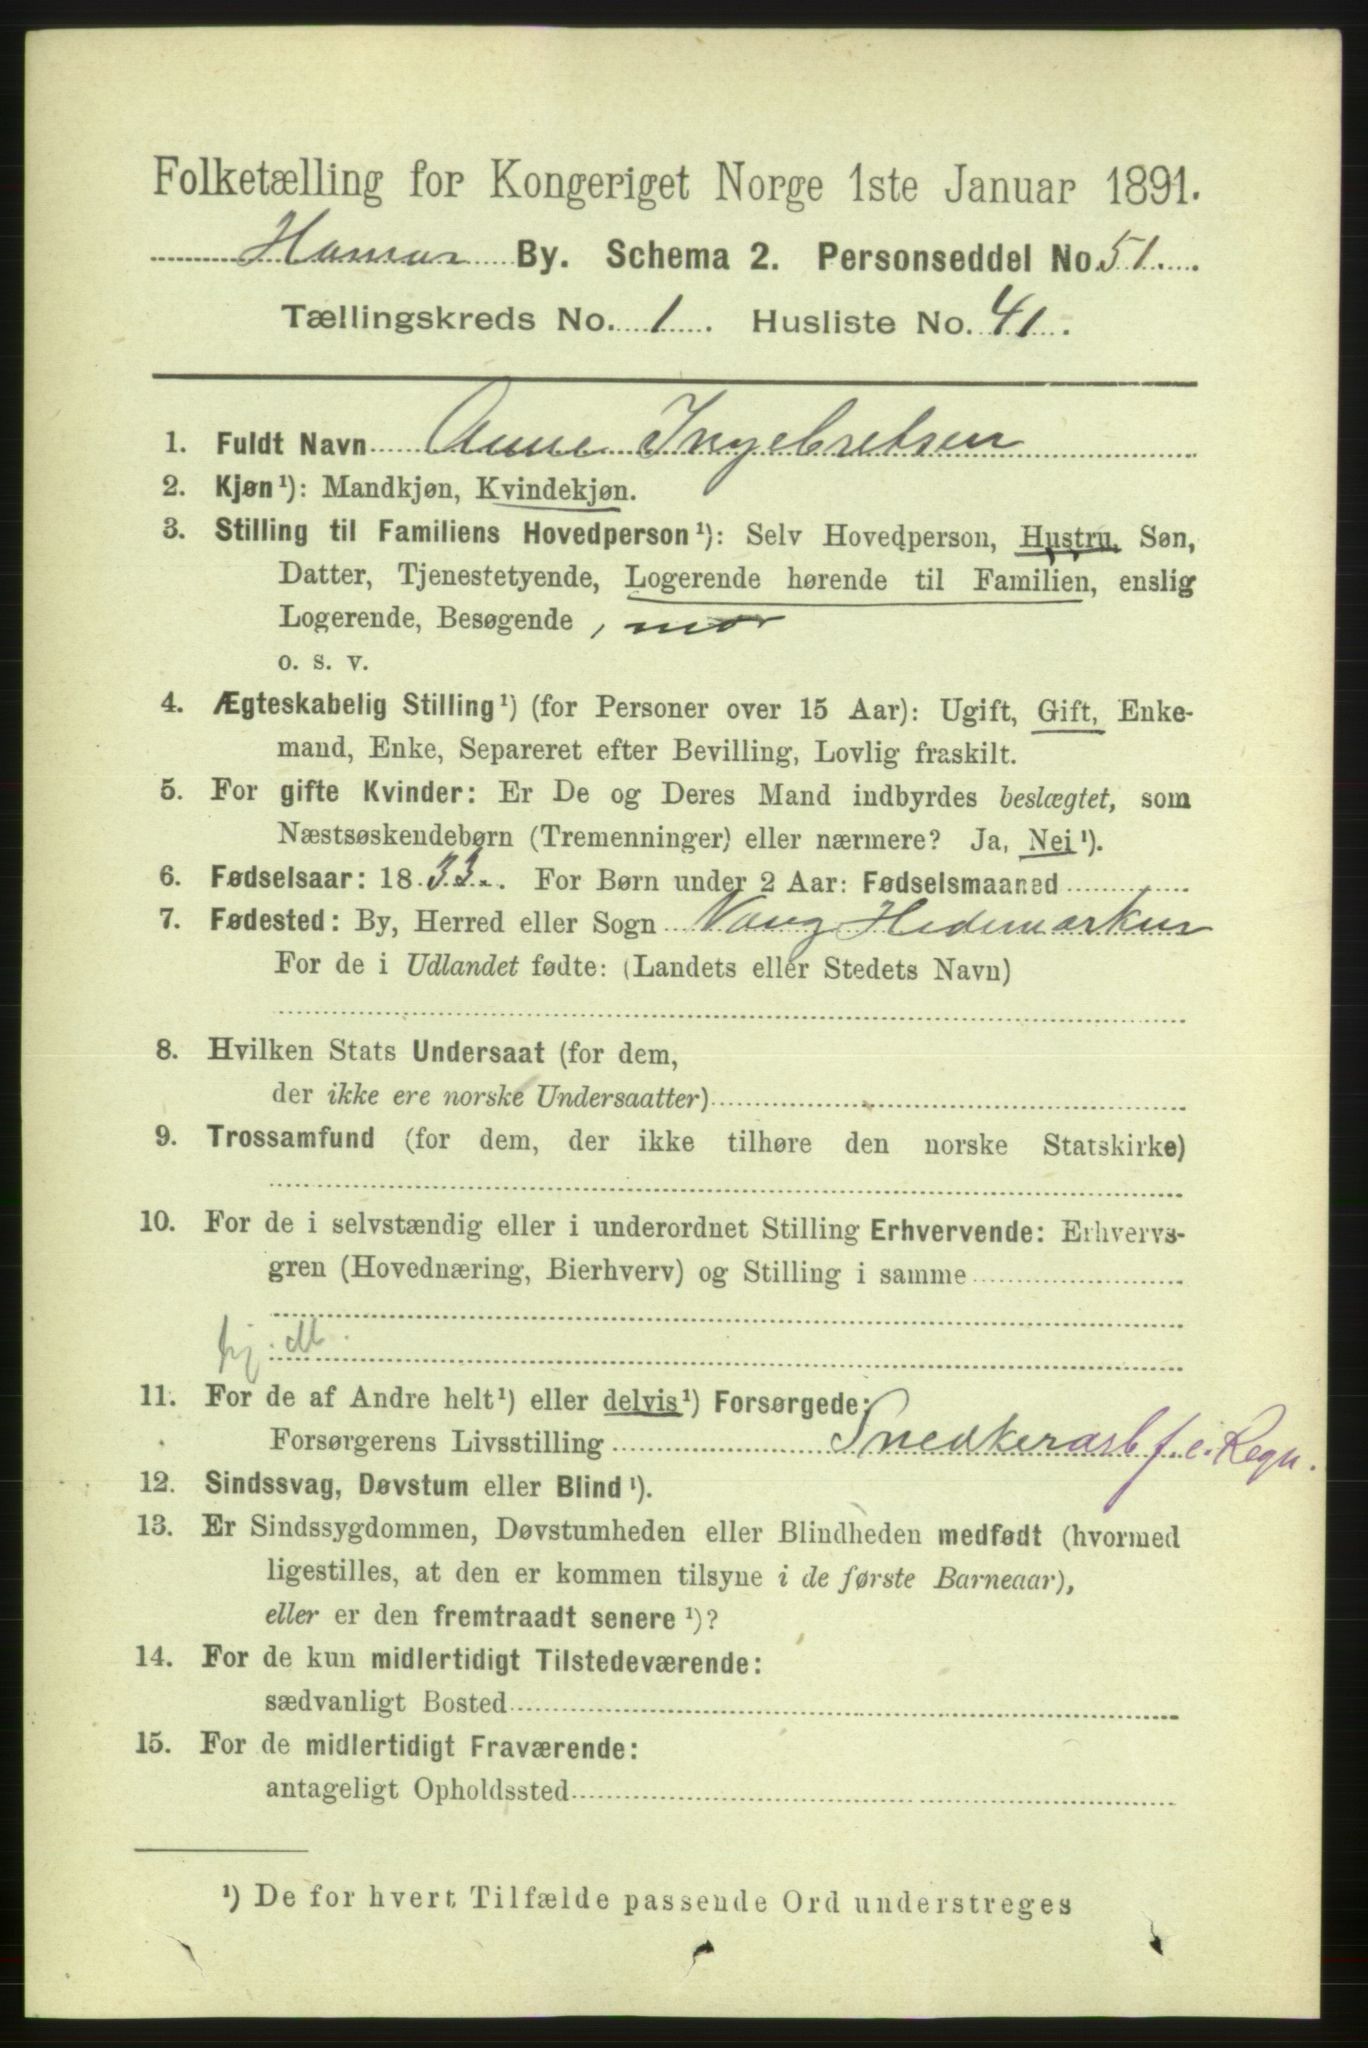 Folketælling for Kongeriget Norge 1ste Januar 1891.
Hamar By. Schema 2. Personseddel No. 51.
Tællingskreds No. 1. Husliste No. 41.
1. Fuldt Navn Anne Ingebretsen
2. Kjøn ¹): Mandkjøn, Kvindekjøn.
3. Stilling til Familiens Hovedperson ¹): Selv Hovedperson, Hustru, Søn,
Datter, Tjenestetyende, Logerende hørende til Familien, enslig
Logerende, Besøgende , mor
o. s. v.
4. Ægteskabelig Stilling ¹) (for Personer over 15 Aar): Ugift, Gift, Enke-
mand, Enke, Separeret efter Bevilling, Lovlig fraskilt.
5. For gifte Kvinder: Er De og Deres Mand indbyrdes beslægtet, som
Næstsøskendebørn (Tremenninger) eller nærmere? Ja, Nei ¹).
6. Fødselsaar: 1833. For Børn under 2 Aar: Fødselsmaaned
7. Fødested: By, Herred eller Sogn Vang Hedemarken
For de i Udlandet fødte: (Landets eller Stedets Navn)
8. Hvilken Stats Undersaat (for dem,
der ikke ere norske Undersaatter)
9. Trossamfund (for dem, der ikke tilhøre den norske Statskirke)
10. For de i selvstændig eller i underordnet Stilling Erhvervende: Erhvervs-
gren (Hovednæring, Bierhverv) og Stilling i samme
11. For de af Andre helt ¹) eller delvis ¹) Forsørgede:
Forsørgerens Livsstilling Snedkerarb f. e. Regn.
12. Sindssvag, Døvstum eller Blind ¹).
13. Er Sindssygdommen, Døvstumheden eller Blindheden medfødt (hvormed
ligestilles, at den er kommen tilsyne i de første Barneaar),
eller er den fremtraadt senere ¹)?
14. For de kun midlertidigt Tilstedeværende:
sædvanligt Bosted
15. For de midlertidigt Fraværende:
antageligt Opholdssted
¹) De for hvert Tilfælde passende Ord understreges